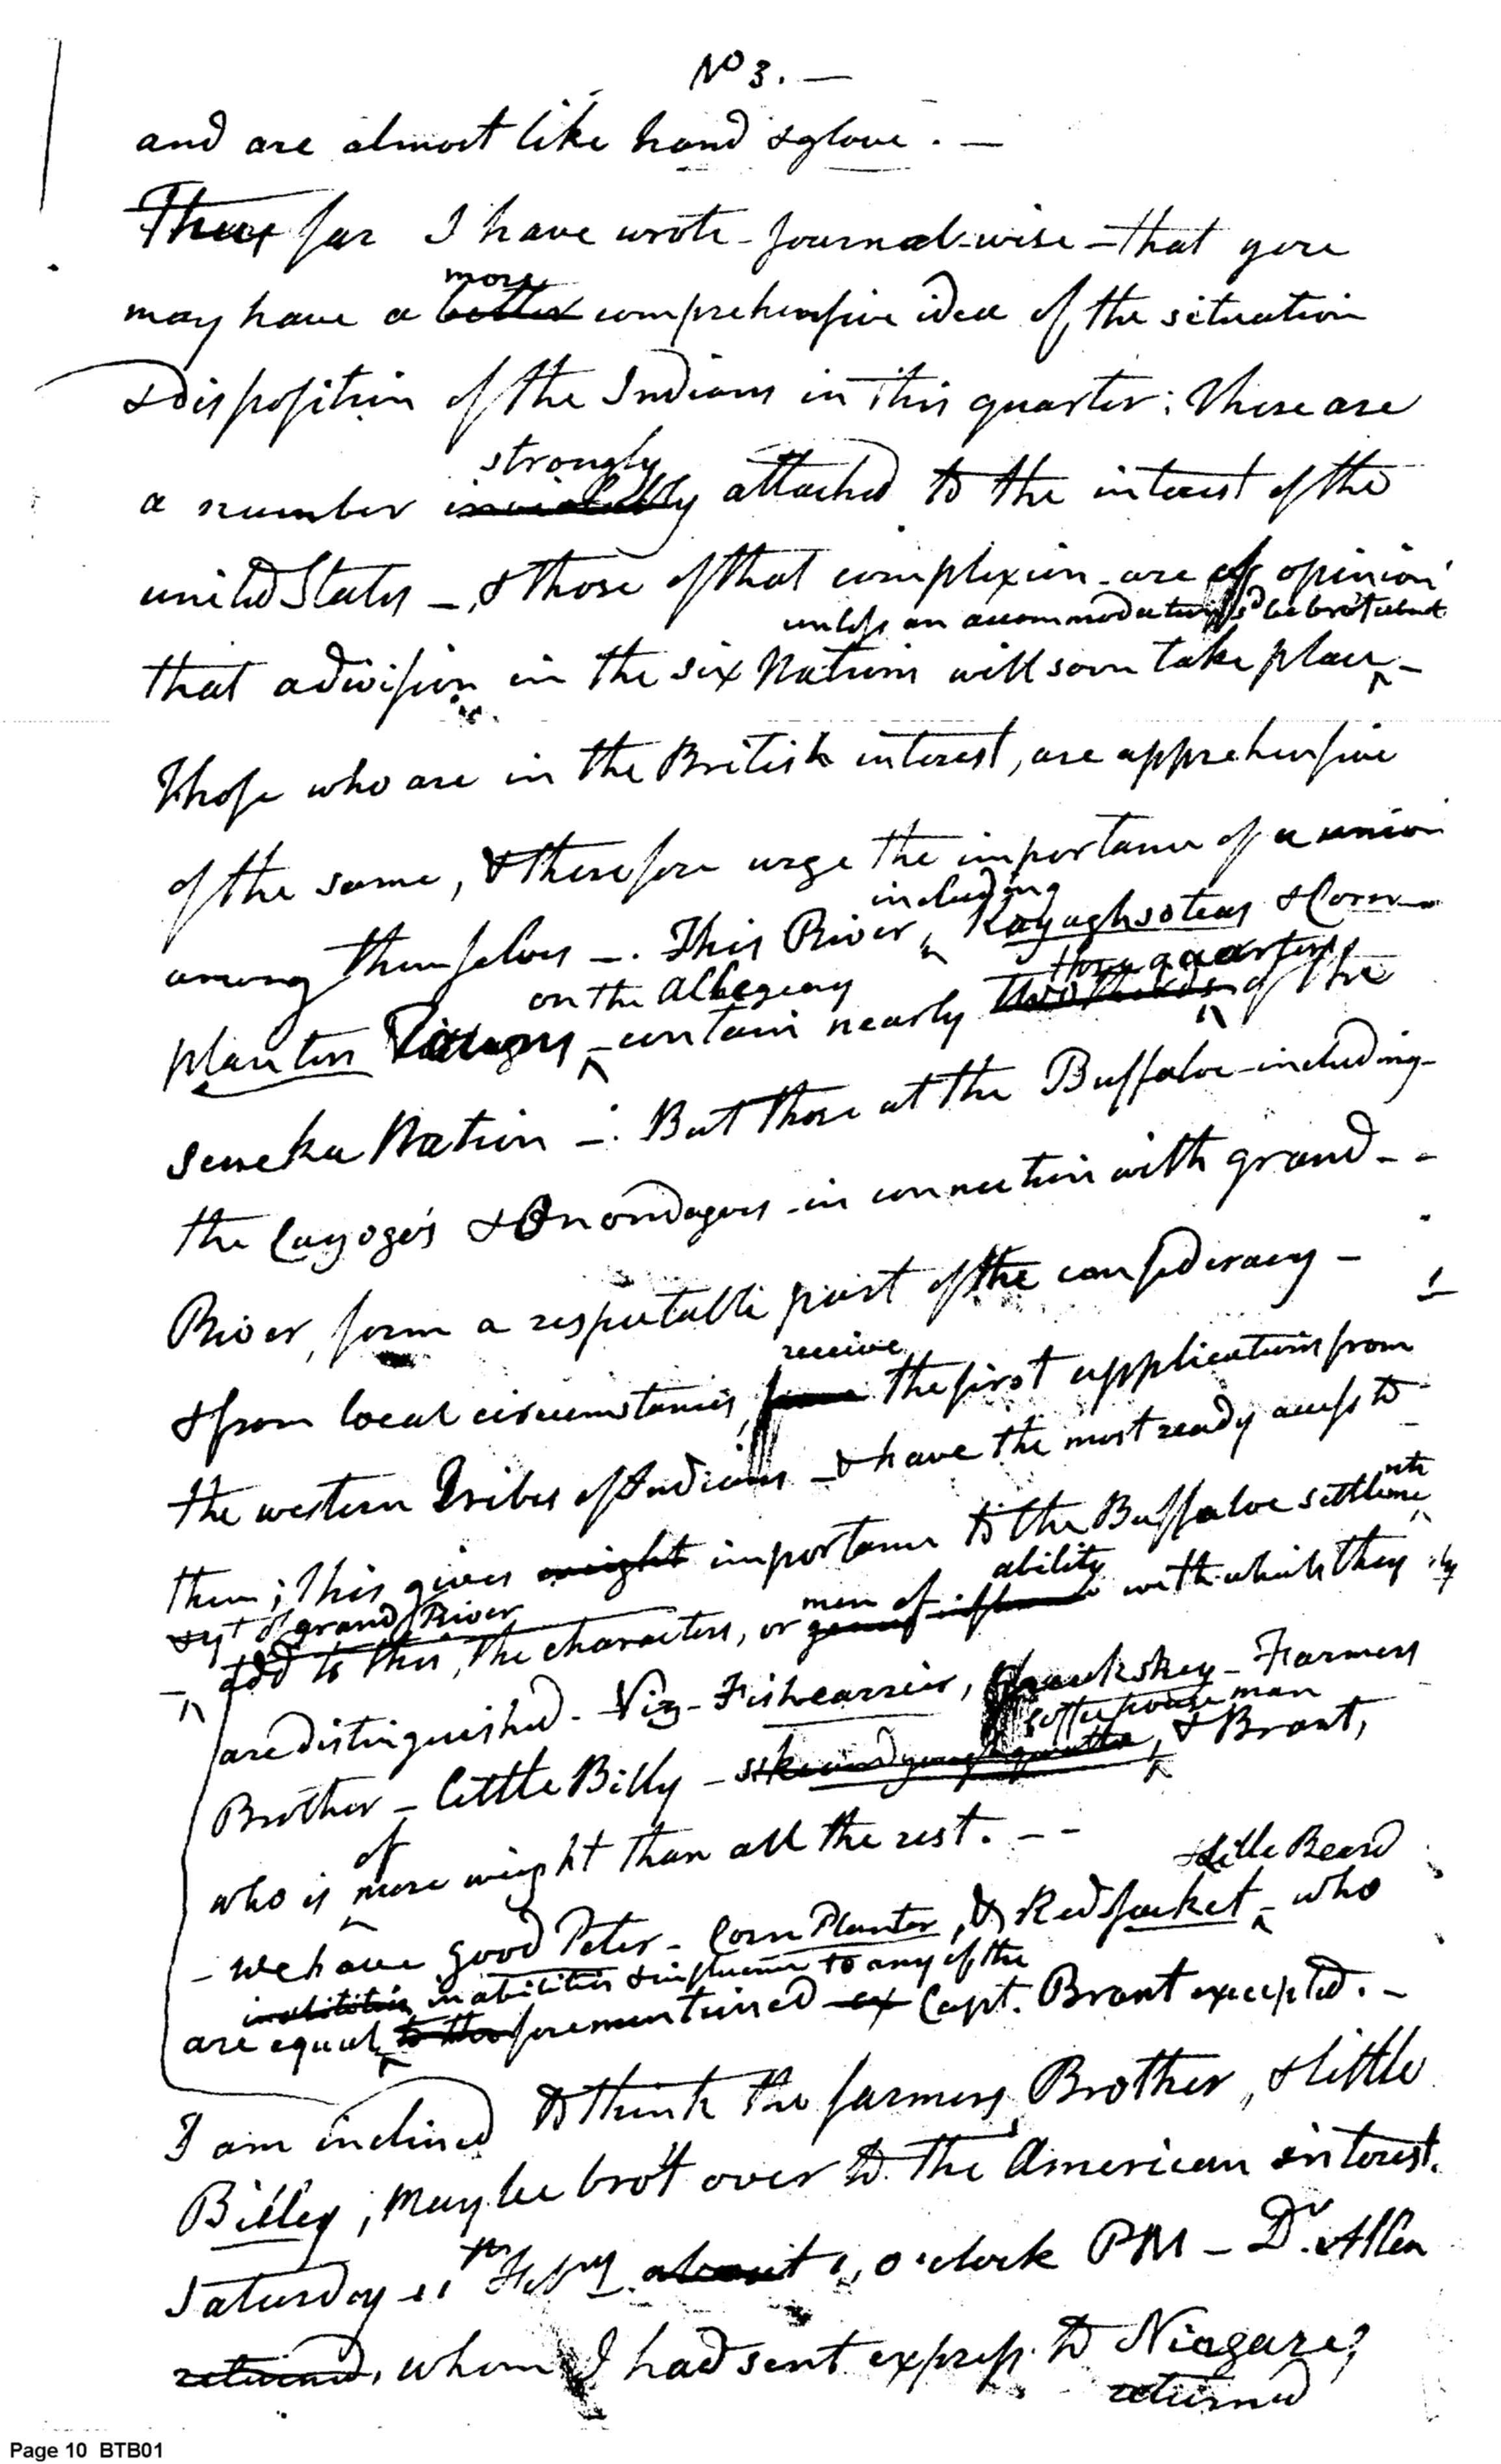 No 3. —
and are almost like hand & glove. —
Thus far I have wrote - journal-wise - that you
more
may have a better comprehensive idea of the situation
& disposition of the Indians in this quarter: there are
strongly
a number inviolably attached to the interest of the
united States —, & those of that complexion - are of opinion
unless an accommodation sd be brot about
that a division in the six Nations will soon take place -
Those who are in the British interest, are apprehensive
of the same, & therefore urge the importance of a union
including
among themselves —. This River, Kayaghsoteas & Corn—
on the Allegeny three quarters
planters Towns - contain nearly two thirds of the
Seneka Nation —: But those at the Buffaloe - including -
the Cayoga's & Onondagas - in connection with grand - -
River, form a respectable part of the confederacy —
receive
& from local circumstances, the first applications from
the western Tribes of Indians - & have the most ready access to
them; this gives weight importance to the Buffaloe settlements
& grand River men of ability
- add to this, the characters, or with which they
are distinguished - Viz - Fishcarrier, - Farmers
man
Brother - little Billy - , & Brant,
of
who is more weight than all the rest. - -
& little Beard
- we have good Peter - Corn Planter, & Red Jacket - who
in abilities & influence to any of the
are equal to the forementioned ex Capt. Brant excepted. -
I am inclined to think the farmers Brother, & little
Billey, may be brot over to the American interest.
Saturday 11th Feby. about 1, o'clock PM - Dr. Allen
returned, whom I had sent express to Niagara,
returned
Page 10 BTB01